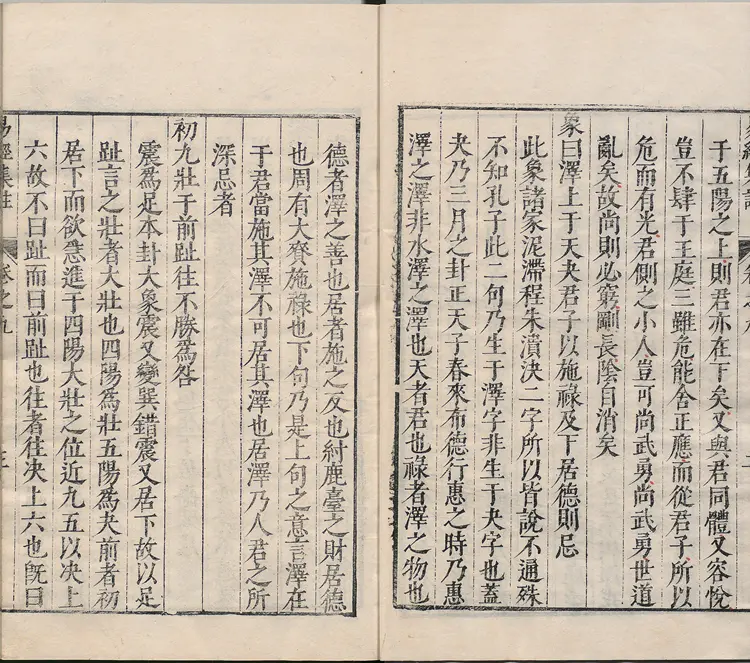 于五陽之上則君亦在下矣又與君同體又容悅
豈不肆于王庭三雖危能舍正應而從君子所以
危而有光君側之小人豈可尚武勇尚武勇世道
亂矣故尚則必窮剛長陰自消矣
象曰澤上于天夬君子以施祿及下居德則忌
此象諸家泥滯程朱潰決二字所以皆說不通殊
不知孔子此二句乃生于澤字非生于夬字也蓋
夬乃三月之卦正天子春來布德行惠之時乃惠
澤之澤非水澤之澤也天者君也祿者澤之物也
德者澤之善也居者施之反也紂鹿臺之財居德
也周有大賚施祿也下句乃是上句之意言澤在
于君當施其澤不可居其澤也居澤乃人君之所
深忌者
初九壯于前趾往不勝爲咎
震爲足本卦大象震又變巽錯震又居下故以足
趾言之壯者大壯也四陽爲壯五陽爲夬前者初
居下而欲急進于四陽大壯之位近九五以決上
六故不曰趾而曰前趾也往者往決上六也既曰
易經集註
卷之九